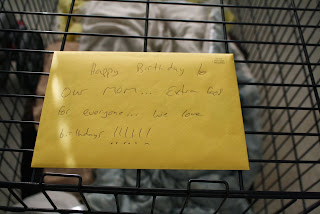 Happy Birthday to
Our Mom... Extra Food
for everyone... We love
birthdays !!!!!!